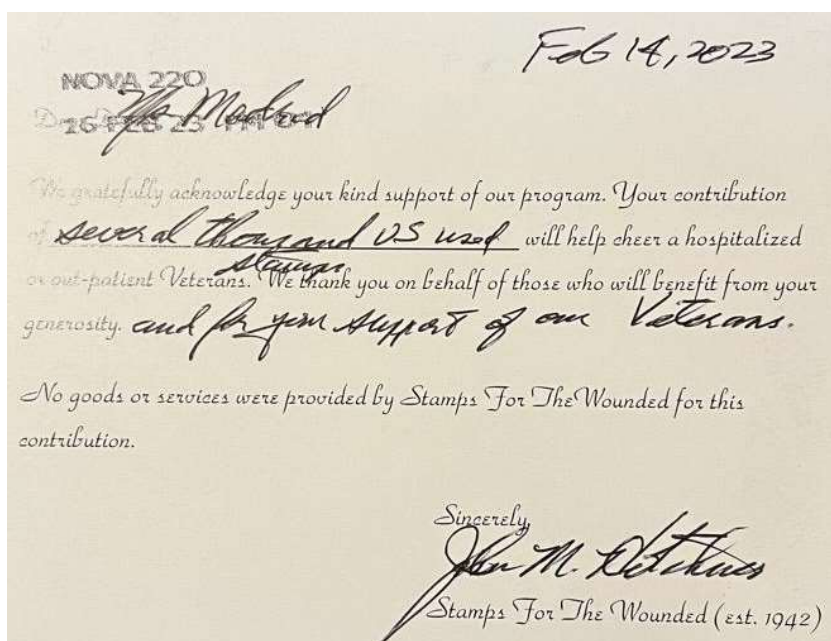 Feb 14, 2023
NOVA 220
Ms Madrid
26 FEB 23 PM
We gratefully acknowledge your kind support of our program. Your contribution
of several thousand US used will help cheer a hospitalized
stamps
or out-patient Veterans. We thank you on behalf of those who will benefit from your
generosity. and for your support of our Veterans.
No goods or services were provided by Stamps For The Wounded for this
contribution.
Sincerely,
John M.
Stamps For The Wounded (est. 1942)